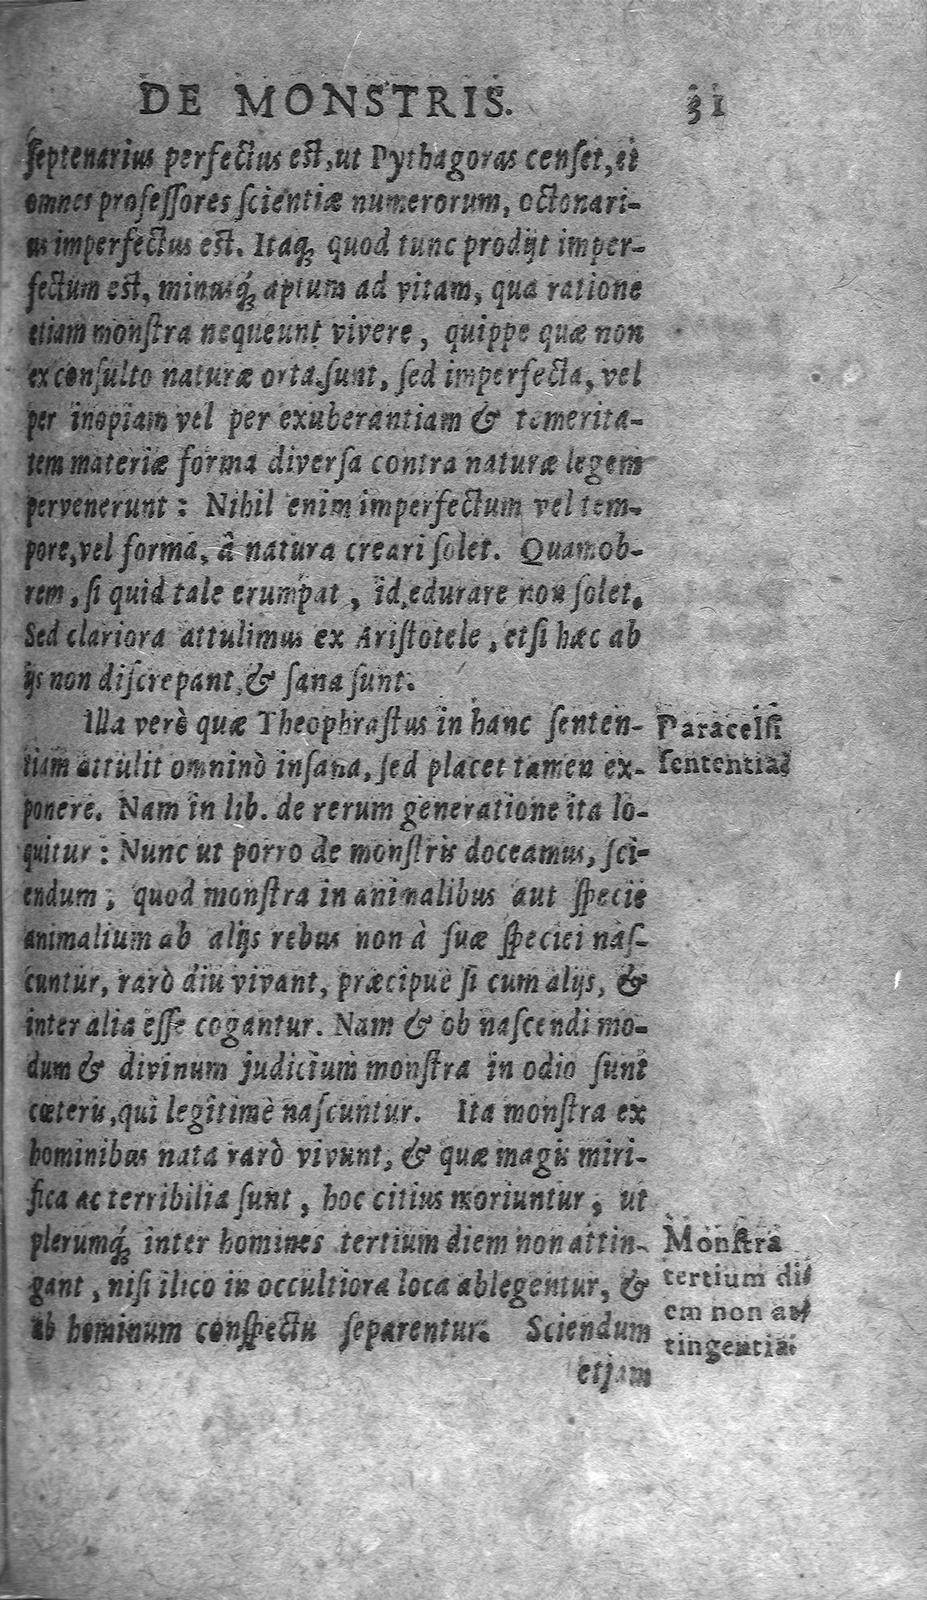 DE MONSTRIS. 31
ſeptenarius perfectus est, ut Pythagoras cenſet, et
omnes profeſſores ſcientiæ numerorum, octonari-
us imperfectus est. Itaq́; quod tunc prodijt imper-
fectum est, minusq́; aptum ad vitam, qua ratione
etiam monſtra nequeunt vivere, quippe quæ non
ex conſulto naturæ orta ſunt, ſed imperfecta, vel
per inopiam vel per exuberantiam & temerita-
tem materiæ forma diverſa contra naturæ legem
pervenerunt: Nihil enim imperfectum vel tem-
pore, vel formá, â natura creari ſolet. Quamob-
rem, ſi quid tale erumpat, id edurare non ſolet.
Sed clariora attulimus ex Ariſtotele, etſi hæc ab
ijs non diſcrepant, & ſana ſunt.
Illa verò quæ Theophraſtus in hanc ſenten-
tiam attulit omninò inſana, ſed placet tamen ex-
ponere. Nam in lib. de rerum generatione ita lo-
quitur: Nunc ut porro de monſtris doceamus, ſci-
endum, quod monſtra in animalibus aut ſpecie
animalium ab alijs rebus non à ſuæ ſpeciei naſ-
cuntur, rarò diu vivant, præcipuè ſi cum alijs, &
inter alia eſſe cogantur. Nam & ob naſcendi mo-
dum & divinum judicium monſtra in odio ſunt
cæteris, qui legitimè naſcuntur. Ita monſtra ex
hominibus nata rarò vivunt, & quæ magis miri-
fica ac terribilia ſunt, hoc citius moriuntur, ut
plerumq́; inter homines tertium diem non attin-
gant, niſi ilico in occultiora loca ablegentur, &
ab hominum conſpectu ſeparentur. Sciendum
etjam
Paracelſi
ſententia
Monſtra
tertium di
em non at
tingentia